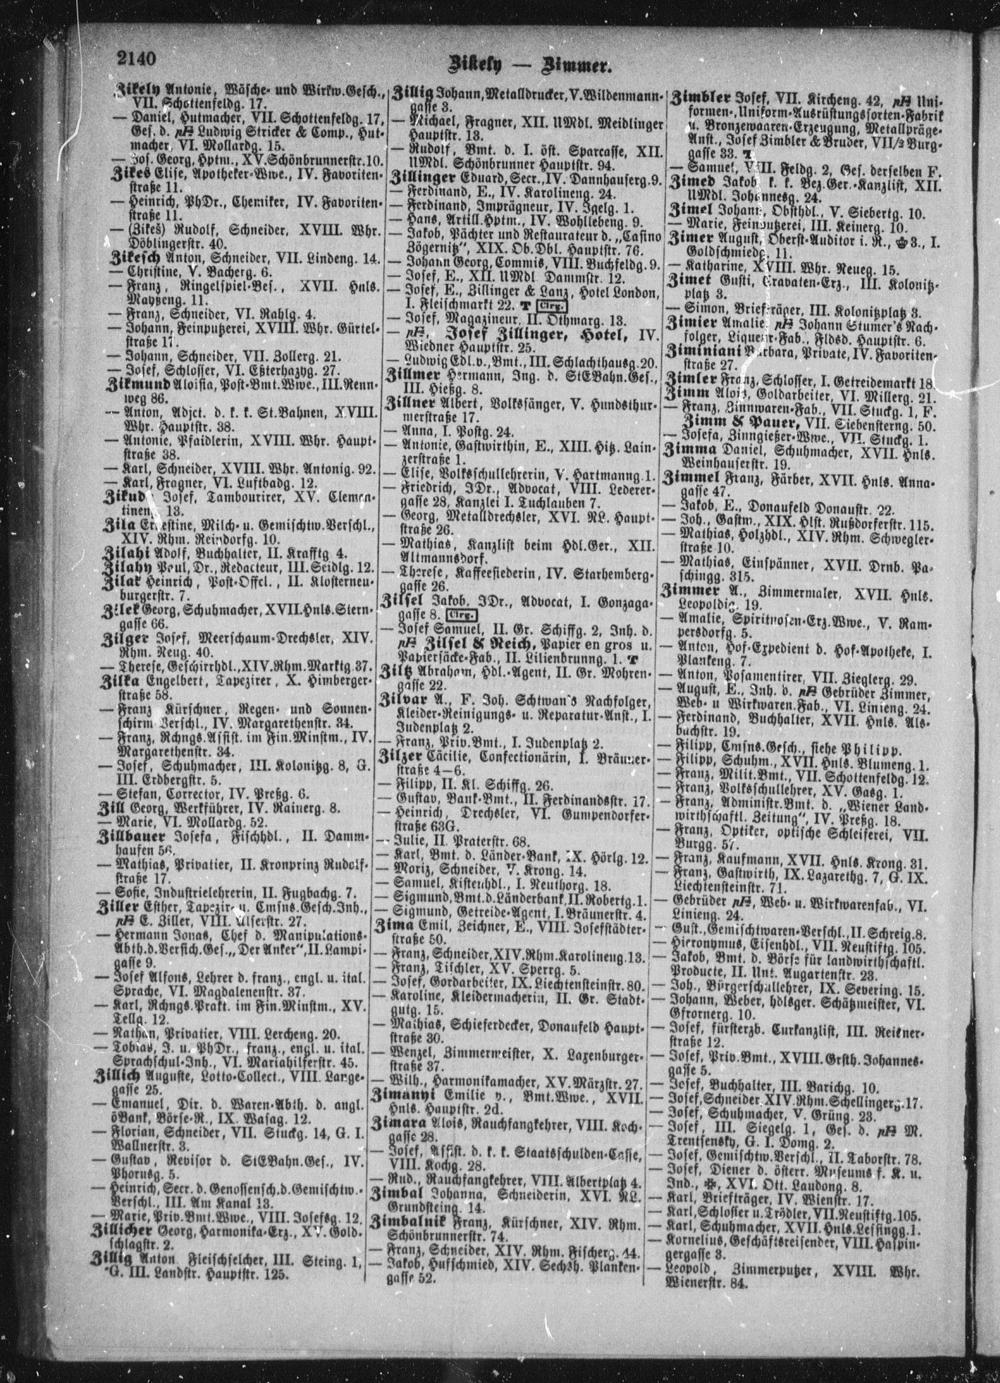 2140
Zikely — Zimmer.
Zikely Antonie, Wäsche- und Wirkw.Gesch.,
VII. Schottenfeldg. 17.
— Daniel, Hutmacher, VII. Schottenfeldg. 17,
Ges. d. Ludwig Stricker & Comp., Hut-
macher, VI. Mollardg. 15.
— Jos. Georg, Hptm., XV. Schönbrunnerstr. 10.
Zikes Elise, Apotheker-Wwe., IV. Favoriten-
straße 11.
— Heinrich, PhDr., Chemiker, IV. Favoriten-
straße 11.
— (Zikeš) Rudolf, Schneider, XVIII. Whr.
Döblingerstr. 40.
Zikesch Anton, Schneider, VII. Lindeng. 14.
— Christine, V. Bacherg. 6.
— Franz, Ringelspiel-Bes., XVII. Hnls.
Mayßeng. 11.
— Franz, Schneider, VI. Rahlg. 4.
— Johann, Feinputzerei, XVIII. Whr. Gürtel-
straße 17.
— Johann, Schneider, VII. Zollerg. 21.
— Josef, Schlosser, VI. Eßterhazyg. 27.
Zikmund Aloisia, Post-Bmt.Wwe., III. Renn-
weg 86.
— Anton, Adjct. d. k. k. St.Bahnen, XVIII.
Whr. Hauptstr. 38.
— Antonie, Pfaidlerin, XVIII. Whr. Haupt-
straße 38.
— Karl, Schneider, XVIII. Whr. Antonig. 92.
— Karl, Fragner, VI. Luftbadg. 12.
Zikud Josef, Tambourirer, XV. Clemen-
tineng. 13.
Zila Ernestine, Milch- u. Gemischtw.Verschl.,
XIV. Rhm. Reindorfg. 10.
Zilahi Adolf, Buchhalter, II. Krafftg 4.
Zilahy Paul, Dr., Redacteur, III. Seidlg. 12.
Zilar Heinrich, Post-Offcl., II. Klosterneu-
burgerstr. 7.
Zilek Georg, Schuhmacher, XVII. Hnls. Stern-
gasse 66.
Zilger Josef, Meerschaum-Drechsler, XIV.
Rhm. Neug. 40.
— Therese, Geschirrhdl., XIV. Rhm. Marktg 37.
Zilka Engelbert, Tapezirer, X. Himberger-
straße 58.
— Franz Kürschner, Regen- und Sonnen-
schirm Verschl., IV. Margarethenstr. 34.
— Franz, Rchngs.Assist. im Fin.Minstm., IV.
Margarethenstr. 34.
— Josef, Schuhmacher, III. Kolonitzg. 8, G.
III. Erdbergstr. 5.
— Stefan, Corrector, IV. Preßg. 6.
Zill Georg, Werkführer, IV. Rainerg. 8.
— Marie, VI. Mollardg. 52.
Zillbauer Josefa, Fischhdl., II. Damm-
haufen 56.
— Mathias, Privatier, II. Kronprinz Rudolf-
straße 17.
— Sofie, Industrielehrerin, II. Fugbachg. 7.
Ziller Esther, Tapezir- u. Cmsns.Gesch.Inh.,
E. Ziller, VIII. Alserstr. 27.
— Hermann Jonas, Chef d. Manipulations-
Abth. d. Versich.Ges. „Der Anker“, II. Lampi-
gasse 9.
— Josef Alfons, Lehrer d. franz., engl. u. ital.
Sprache, VI. Magdalenenstr. 37.
— Karl, Rchngs.Prakt. im Fin.Minstm., XV.
Tellg. 12.
— Nathan, Privatier, VIII. Lercheng. 20.
— Tobias, J. u. PhDr., franz., engl. u. ital.
Sprachschul-Inh., VI. Mariahilferstr. 45.
Zillich Auguste, Lotto-Collect., VIII. Lange-
gasse 25.
— Emanuel, Dir. d. Waren-Abth. d. angl.
öBank, Börse-R., IX. Wasag. 12.
— Florian, Schneider, VII. Stuckg. 14, G. I.
Wallnerstr. 3.
— Gustav, Revisor d. StEBahn.Ges., IV.
Phorusg. 5.
— Heinrich, Secr. d. Genossensch. d. Gemischtw.-
Verschl., III. Am Kanal 13.
— Marie, Priv.Bmt.Wwe., VIII. Josefsg. 12.
Zillicher Georg, Harmonika-Erz., XV. Gold-
schlagstr. 2.
Zillig Anton Fleischselcher, III. Steing. 1,
G. III. Landstr. Hauptstr. 125.
Zillig Johann, Metalldrucker, V. Wildenmann-
gasse 3.
— Michael, Fragner, XII. UMdl. Meidlinger
Hauptstr. 13.
— Rudolf, Bmt. d. I. öst. Sparcasse, XII.
UMdl. Schönbrunner Hauptstr. 94.
Zillinger Eduard, Secr., IV. Dannhauserg. 9.
— Ferdinand, E., IV. Karolineng. 24.
— Ferdinand, Imprägneur, IV. Igelg. 1.
— Hans, Artill.Hptm., IV. Wohllebeng. 9.
— Jakob, Pächter und Restaurateur d. „Casino
Zögernitz“, XIX. Ob.Dbl. Hauptstr. 76.
— Johann Georg, Commis, VIII. Buchfeldg. 9.
— Josef, E., XII. UMdl. Dammstr. 12.
— Josef, E., Zillinger & Lanz, Hotel London,
I. Fleischmarkt 22. Clrg.
— Josef, Magazineur, II. Othmarg. 13.
— Josef Zillinger, Hotel, IV.
Wiedner Hauptstr. 25.
— Ludwig Edl. v., Bmt., III. Schlachthausg. 20.
Zillmer Hermann, Ing. d. StEBahn.Ges.,
III. Hießg. 8.
Zillner Albert, Volkssänger, V. Hundsthur-
merstraße 17.
— Anna, I. Postg. 24.
— Antonie, Gastwirthin, E., XIII. Hitz. Lain-
zerstraße 1.
— Elise, Volksschullehrerin, V. Hartmanng. 1.
— Friedrich, JDr., Advocat, VIII. Lederer-
gasse 28, Kanzlei I. Tuchlauben 7.
— Georg, Metalldrechsler, XVI. NL. Haupt-
straße 26.
— Mathias, Kanzlist beim Hdl.Ger., XII.
Altmannsdorf.
— Therese, Kaffeesiederin, IV. Starhemberg-
gasse 26.
Zilsel Jakob, JDr., Advocat, I. Gonzaga-
gasse 8. Clrg.
— Josef Samuel, II. Gr. Schiffg. 2, Inh. d.
Zilsel & Reich, Papier en gros u.
Papiersäcke-Fab., II. Lilienbrunng. 1.
Ziltz Abraham, Hdl.-Agent, II. Gr. Mohren-
gasse 22.
Zilvar A., F. Joh. Schtwan's Nachfolger,
Kleider-Reinigungs- u. Reparatur-Anst., I.
Judenplatz 2.
— Franz, Priv.Bmt., I. Judenplatz 2.
Zilzer Cäcilie, Confectionärin, I. Bräuner-
straße 4–6.
— Filipp, II. Kl. Schiffg. 26.
— Gustav, Bank-Bmt., II. Ferdinandsstr. 17.
— Heinrich, Drechsler, VI. Gumpendorfer-
straße 63G.
— Julie, II. Praterstr. 68.
— Karl, Bmt. d. Länder-Bank, IX. Hörlg. 12.
— Moriz, Schneider, V. Krong. 14.
— Samuel, Kistenhdl., I. Neuthorg. 18.
— Sigmund, Bmt. d. Länderbank, II. Robertg. 1.
— Sigmund, Getreide-Agent, I. Bräunerstr. 4.
Zima Emil, Zeichner, E., VIII. Josefstädter-
straße 50.
— Franz, Schneider, XIV. Rhm. Karolineng. 13.
— Franz, Tischler, XV. Sperrg. 5.
— Josef, Gordarbeiter, IX. Liechtensteinstr. 80.
— Karoline, Kleidermacherin, II. Gr. Stadt-
gutg. 15.
— Mathias, Schieferdecker, Donaufeld Haupt-
straße 30.
— Wenzel, Zimmermeister, X. Laxenburger-
straße 37.
— Wilh., Harmonikamacher, XV. Märzstr. 27.
Zimanyi Emilie v., Bmt.Wwe., XVII.
Hnls. Hauptstr. 2d.
Zimara Alois, Rauchfangkehrer, VIII. Koch-
gasse 28.
— Josef, Assist. d. k. k. Staatsschulden-Casse,
VIII. Kochg. 28.
— Rud., Rauchfangkehrer, VIII. Albertplatz 4.
Zimbal Johanna, Schneiderin, XVI. NL.
Grundsteing. 14.
Zimbalnik Franz, Kürschner, XIV. Rhm.
Schönbrunnerstr. 74.
— Franz, Schneider, XIV. Rhm. Fischerg. 14.
— Jakob, Hufschmied, XIV. Sechsh. Planken-
gasse 52.
Zimbler Josef, VII. Kircheng. 42, Uni-
formen-, Uniform-Ausrüstungssorten-Fabrik
u. Bronzewaaren-Erzeugung, Metallpräge-
Anst., Josef Zimbler & Bruder, VII/2 Burg-
gasse 33.
— Samuel, VIII. Feldg. 2, Ges. derselben F.
Zimed Jakob k. k. Bez.Ger.-Kanzlist, XII.
UMdl. Johannesg. 24.
Zimel Johann, Obsthdl., V. Siebertg. 10.
— Marie, Feinputzerei, III. Keinerg. 10.
Zimer August, Oberst-Auditor i. R., 3., I.
Goldschmiedg. 11.
— Katharine, XVIII. Whr. Neueg. 15.
Zimet Gusti, Cravaten-Erz., III. Kolonitz-
platz 3.
— Simon, Briefträger, III. Kolonitzplatz 3.
Zimier Amalie, Johann Stumer's Nach-
folger, Liqueur-Fab., Fldsd. Hauptstr. 6.
Ziminiani Barbara, Private, IV. Favoriten-
straße 27.
Zimler Franz, Schlosser, I. Getreidemarkt 18.
Zimm Alois, Goldarbeiter, VI. Millerg. 21.
— Franz, Zinnwaren-Fab., VII. Stuckg. 1, F.
Zimm & Pauer, VII. Siebensterng. 50.
— Josefa, Zinngießer-Wwe., VII. Stuckg. 1.
Zimma Daniel, Schuhmacher, XVII. Hnls.
Weinhauserstr. 19.
Zimmel Franz, Färber, XVII. Hnls. Anna-
gasse 47.
— Jakob, E., Donaufeld Donaustr. 22.
— Joh., Gastw., XIX. Hlst. Rußdorferstr. 115.
— Mathias, Holzhdl., XIV. Rhm. Schwegler-
straße 10.
— Mathias, Einspänner, XVII. Drnb. Pa-
schingg. 315.
Zimmer A., Zimmermaler, XVII. Hnls.
Leopoldig. 19.
— Amalie, Spirituosen-Erz.Wwe., V. Ram-
persdorfg. 5.
— Anton, Hof-Expedient d. Hof-Apotheke, I.
Plankeng. 7.
— Anton, Posamentirer, VII. Zieglerg. 29.
— August, E., Inh. d. Gebrüder Zimmer,
Web- u. Wirkwaren.Fab., VI. Linieng. 24.
— Ferdinand, Buchhalter, XVII. Hnls. Als-
bachstr. 19.
— Filipp, Cmsns.Gesch., siehe Philipp.
— Filipp, Schuhm., XVII. Hnls. Blumeng. 1.
— Franz, Milit.Bmt., VII. Schottenfeldg. 12.
— Franz, Volksschullehrer, XV. Gasg. 1.
— Franz, Administr.Bmt. d. „Wiener Land-
wirthschaftl. Zeitung“, IV. Preßg. 18.
— Franz, Optiker, optische Schleiferei, VII.
Burgg. 57.
— Franz, Kaufmann, XVII. Hnls. Krong. 31.
— Franz, Gastwirth, IX. Lazarethg. 7, G. IX.
Liechtensteinstr. 71.
— Gebrüder, Web- u. Wirkwarenfab., VI.
Linieng. 24.
— Gust., Gemischtwaren-Verschl., II. Schreig. 8.
— Hieronymus, Eisenhdl., VII. Neustiftg. 105.
— Jakob, Bmt. d. Börse für landwirthschaftl.
Producte, II. Unt. Augartenstr. 23.
— Joh., Bürgerschullehrer, IX. Severing. 15.
— Johann, Weber, hdlsger. Schätzmeister, VI.
Gfrornerg. 10.
— Josef, fürsterzb. Curkanzlist, III. Reisner-
straße 12.
— Josef, Priv.Bmt., XVIII. Grsth. Johannes-
gasse 5.
— Josef, Buchhalter, III. Barichg. 10.
— Josef, Schneider, XIV. Rhm. Schellingerg. 17.
— Josef, Schuhmacher, V. Grüng. 23.
— Josef, III. Siegelg. 1, Ges. d. M.
Trentsensky, G. I. Domg. 2.
— Josef, Gemischtw.Verschl., II. Taborstr. 78.
— Josef, Diener d. österr. Museums f. K. u.
Ind., XVI. Ott. Laudong. 8.
— Karl, Briefträger, IV. Wienstr. 17.
— Karl, Schlosser u. Trödler, VII. Neustiftg. 105.
— Karl, Schuhmacher, XVII. Hnls. Lessingg. 1.
— Kornelius, Geschäftsreisender, VIII. Haspin-
gergasse 3.
— Leopold, Zimmerputzer, XVIII. Whr.
Wienerstr. 84.